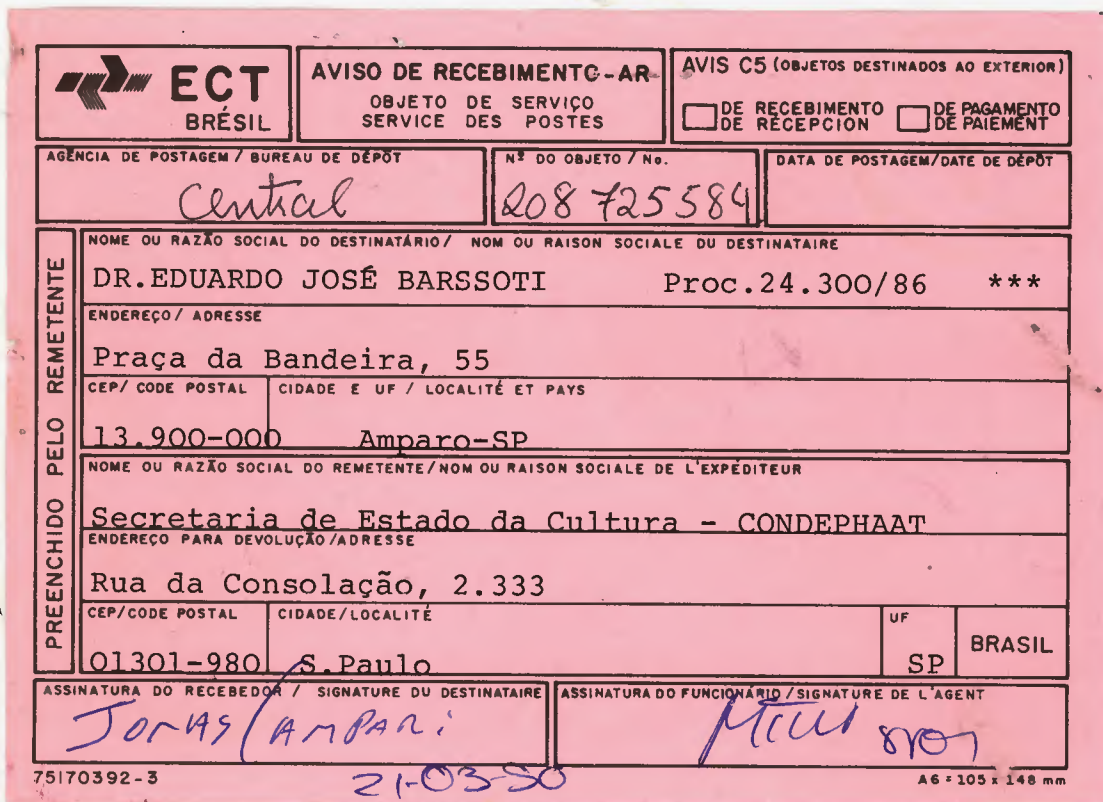 ECT
BRÉSIL
AVISO DE RECEBIMENTO-AR
OBJETO DE SERVIÇO
SERVICE DES POSTES
AVIS C5 (OBJETOS DESTINADOS AO EXTERIOR)
DE RECEBIMENTO
DE RÉCEPCION
DE PAGAMENTO
DE PAIEMENT
AGÊNCIA DE POSTAGEM / BUREAU DE DÉPÔT
Central
Nº DO OBJETO / No.
208 725584
DATA DE POSTAGEM/DATE DE DÉPÔT
PREENCHIDO PELO REMETENTE
NOME OU RAZÃO SOCIAL DO DESTINATÁRIO/ NOM OU RAISON SOCIALE DU DESTINATAIRE
DR.EDUARDO JOSÉ BARSSOTI Proc.24.300/86 ***
ENDEREÇO/ ADRESSE
Praça da Bandeira, 55
CEP/ CODE POSTAL
CIDADE E UF / LOCALITÉ ET PAYS
13.900-000 Amparo-SP
NOME OU RAZÃO SOCIAL DO REMETENTE/NOM OU RAISON SOCIALE DE L'EXPÉDITEUR
Secretaria de Estado da Cultura - CONDEPHAAT
ENDEREÇO PARA DEVOLUÇÃO/ADRESSE
Rua da Consolação, 2.333
CEP/CODE POSTAL
CIDADE/LOCALITÉ
UF
BRASIL
01301-980 S.Paulo SP
ASSINATURA DO RECEBEDOR / SIGNATURE DU DESTINATAIRE
JONAS CAMPARI
ASSINATURA DO FUNCIONÁRIO/SIGNATURE DE L'AGENT
75170392-3
A6 = 105 x 148 mm